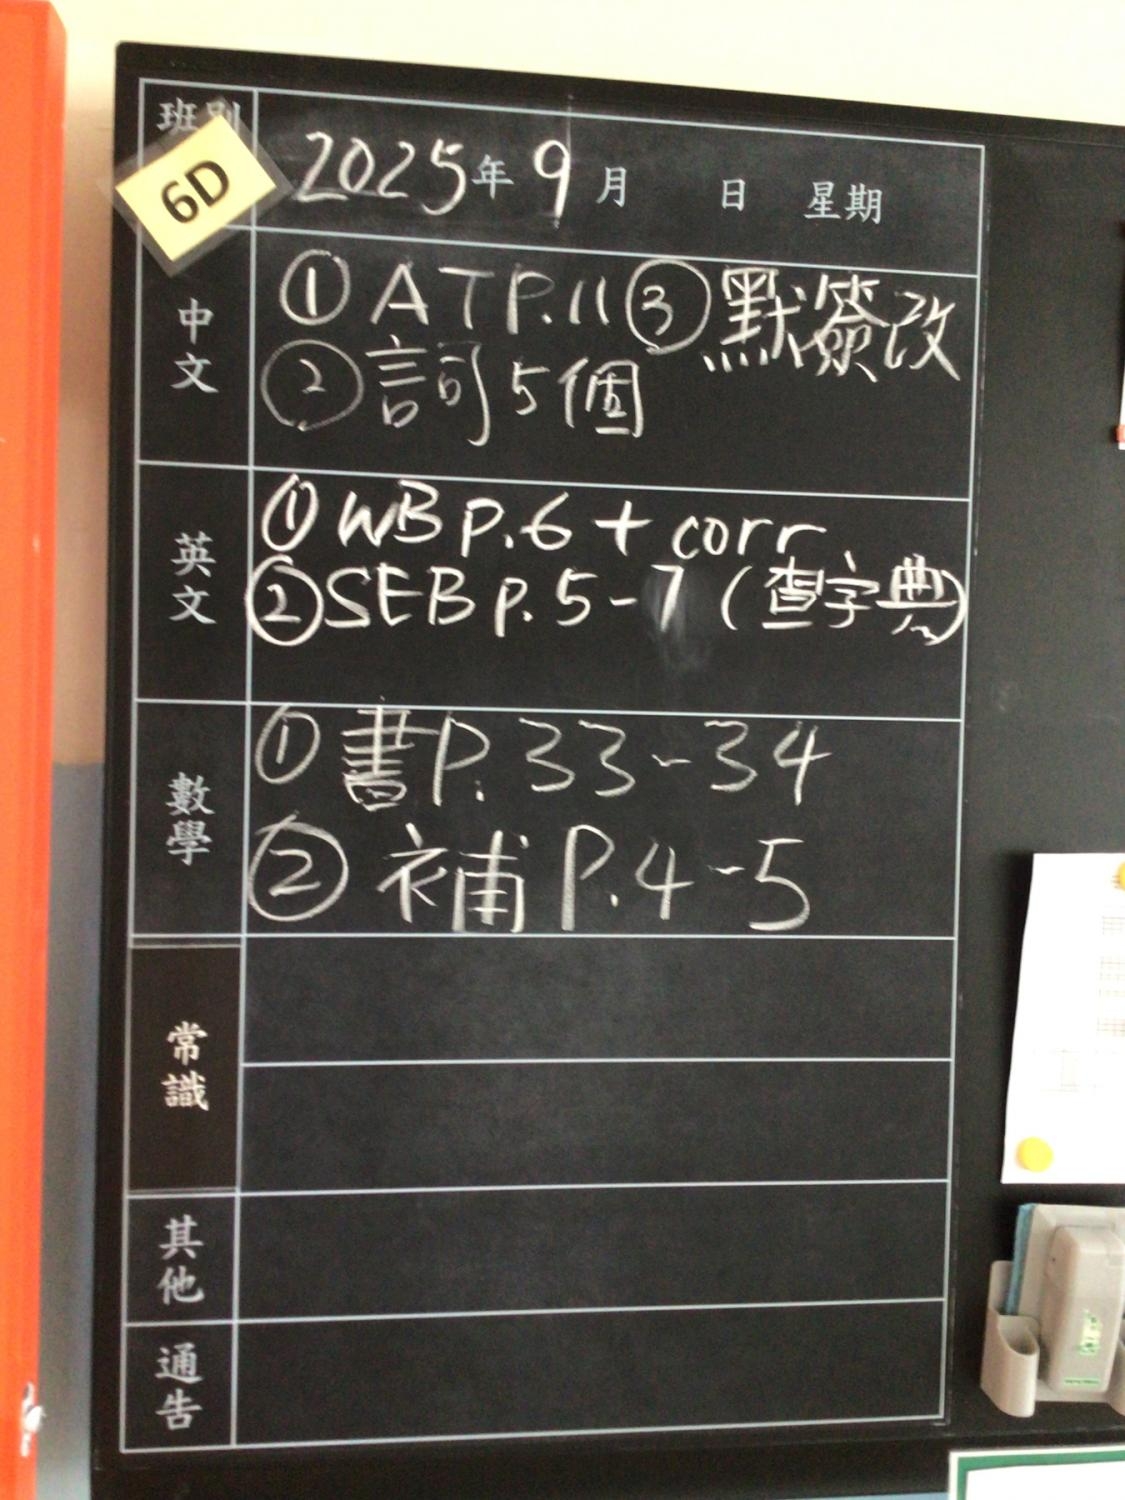 班別
6D
2025年9月 日 星期
中文
① ATP.11 ③ 默簽改
② 詞5個
英文
① WB p.6 + corr
② SEB p.5-7 (查字典)
數學
① 書P.33-34
② 補P.4-5
常識
其他
通告